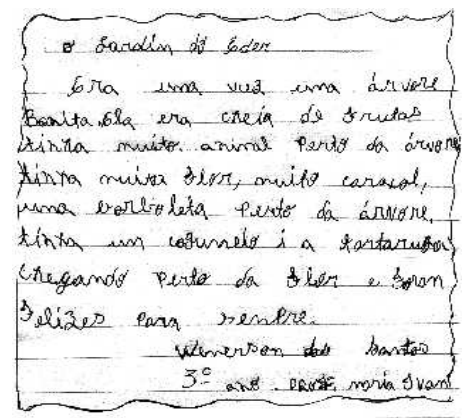 o Jardin do Eder
Era uma vez uma árvore
Bonita Ela era cheia de frutas
tinha muito animal Perto da árvore
tinha muita flor, muito caracol,
uma borboleta Perto da árvore,
tinha um cogumelo i a tartaruga
chegando Perto da flor e foram
felizes para senpre.
Wenerson dos Santos
3º ano Prof maria Ivani